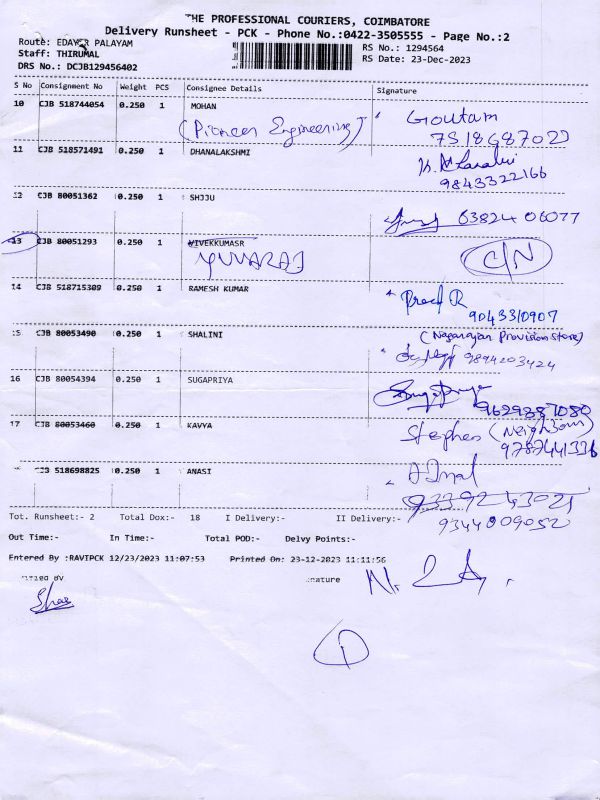 THE PROFESSIONAL COURIERS, COIMBATORE
Delivery Runsheet - PCK - Phone No.:0422-3505555 - Page No.:2
Route: EDAYER PALAYAM
RS No.: 1294564
Staff: THIRUMAL
RS Date: 23-Dec-2023
DRS No.: DCJB129456402
S No Consignment No Weight PCS Consignee Details Signature
10 CJB 518744054 0.250 1 MOHAN Goutam
(Pioneer Engineering)
11 CJB 518571491 0.250 1 DHANALAKSHMI
9843322166
12 CJB 80051362 0.250 1 SHJJU
63824 06077
13 CJB 80051293 0.250 1 VIVEKKUMASR C/N
YUVARAJ
14 CJB 518715309 0.250 1 RAMESH KUMAR
9043310907
15 CJB 80053490 0.250 1 SHALINI (Nagarajan Provision Store)
9894203424
16 CJB 80054394 0.250 1 SUGAPRIYA Sugapriya
9629887080
17 CJB 80053460 0.250 1 KAVYA Stephen (Neighbour)
9787441336
CJB 518698825 0.250 1 ANASI
9339243021
9344009052
Tot. Runsheet:- 2 Total Dox:- 18 I Delivery:- II Delivery:-
Out Time:- In Time:- Total POD:- Delvy Points:-
Entered By :RAVIPCK 12/23/2023 11:07:53 Printed On: 23-12-2023 11:11:56